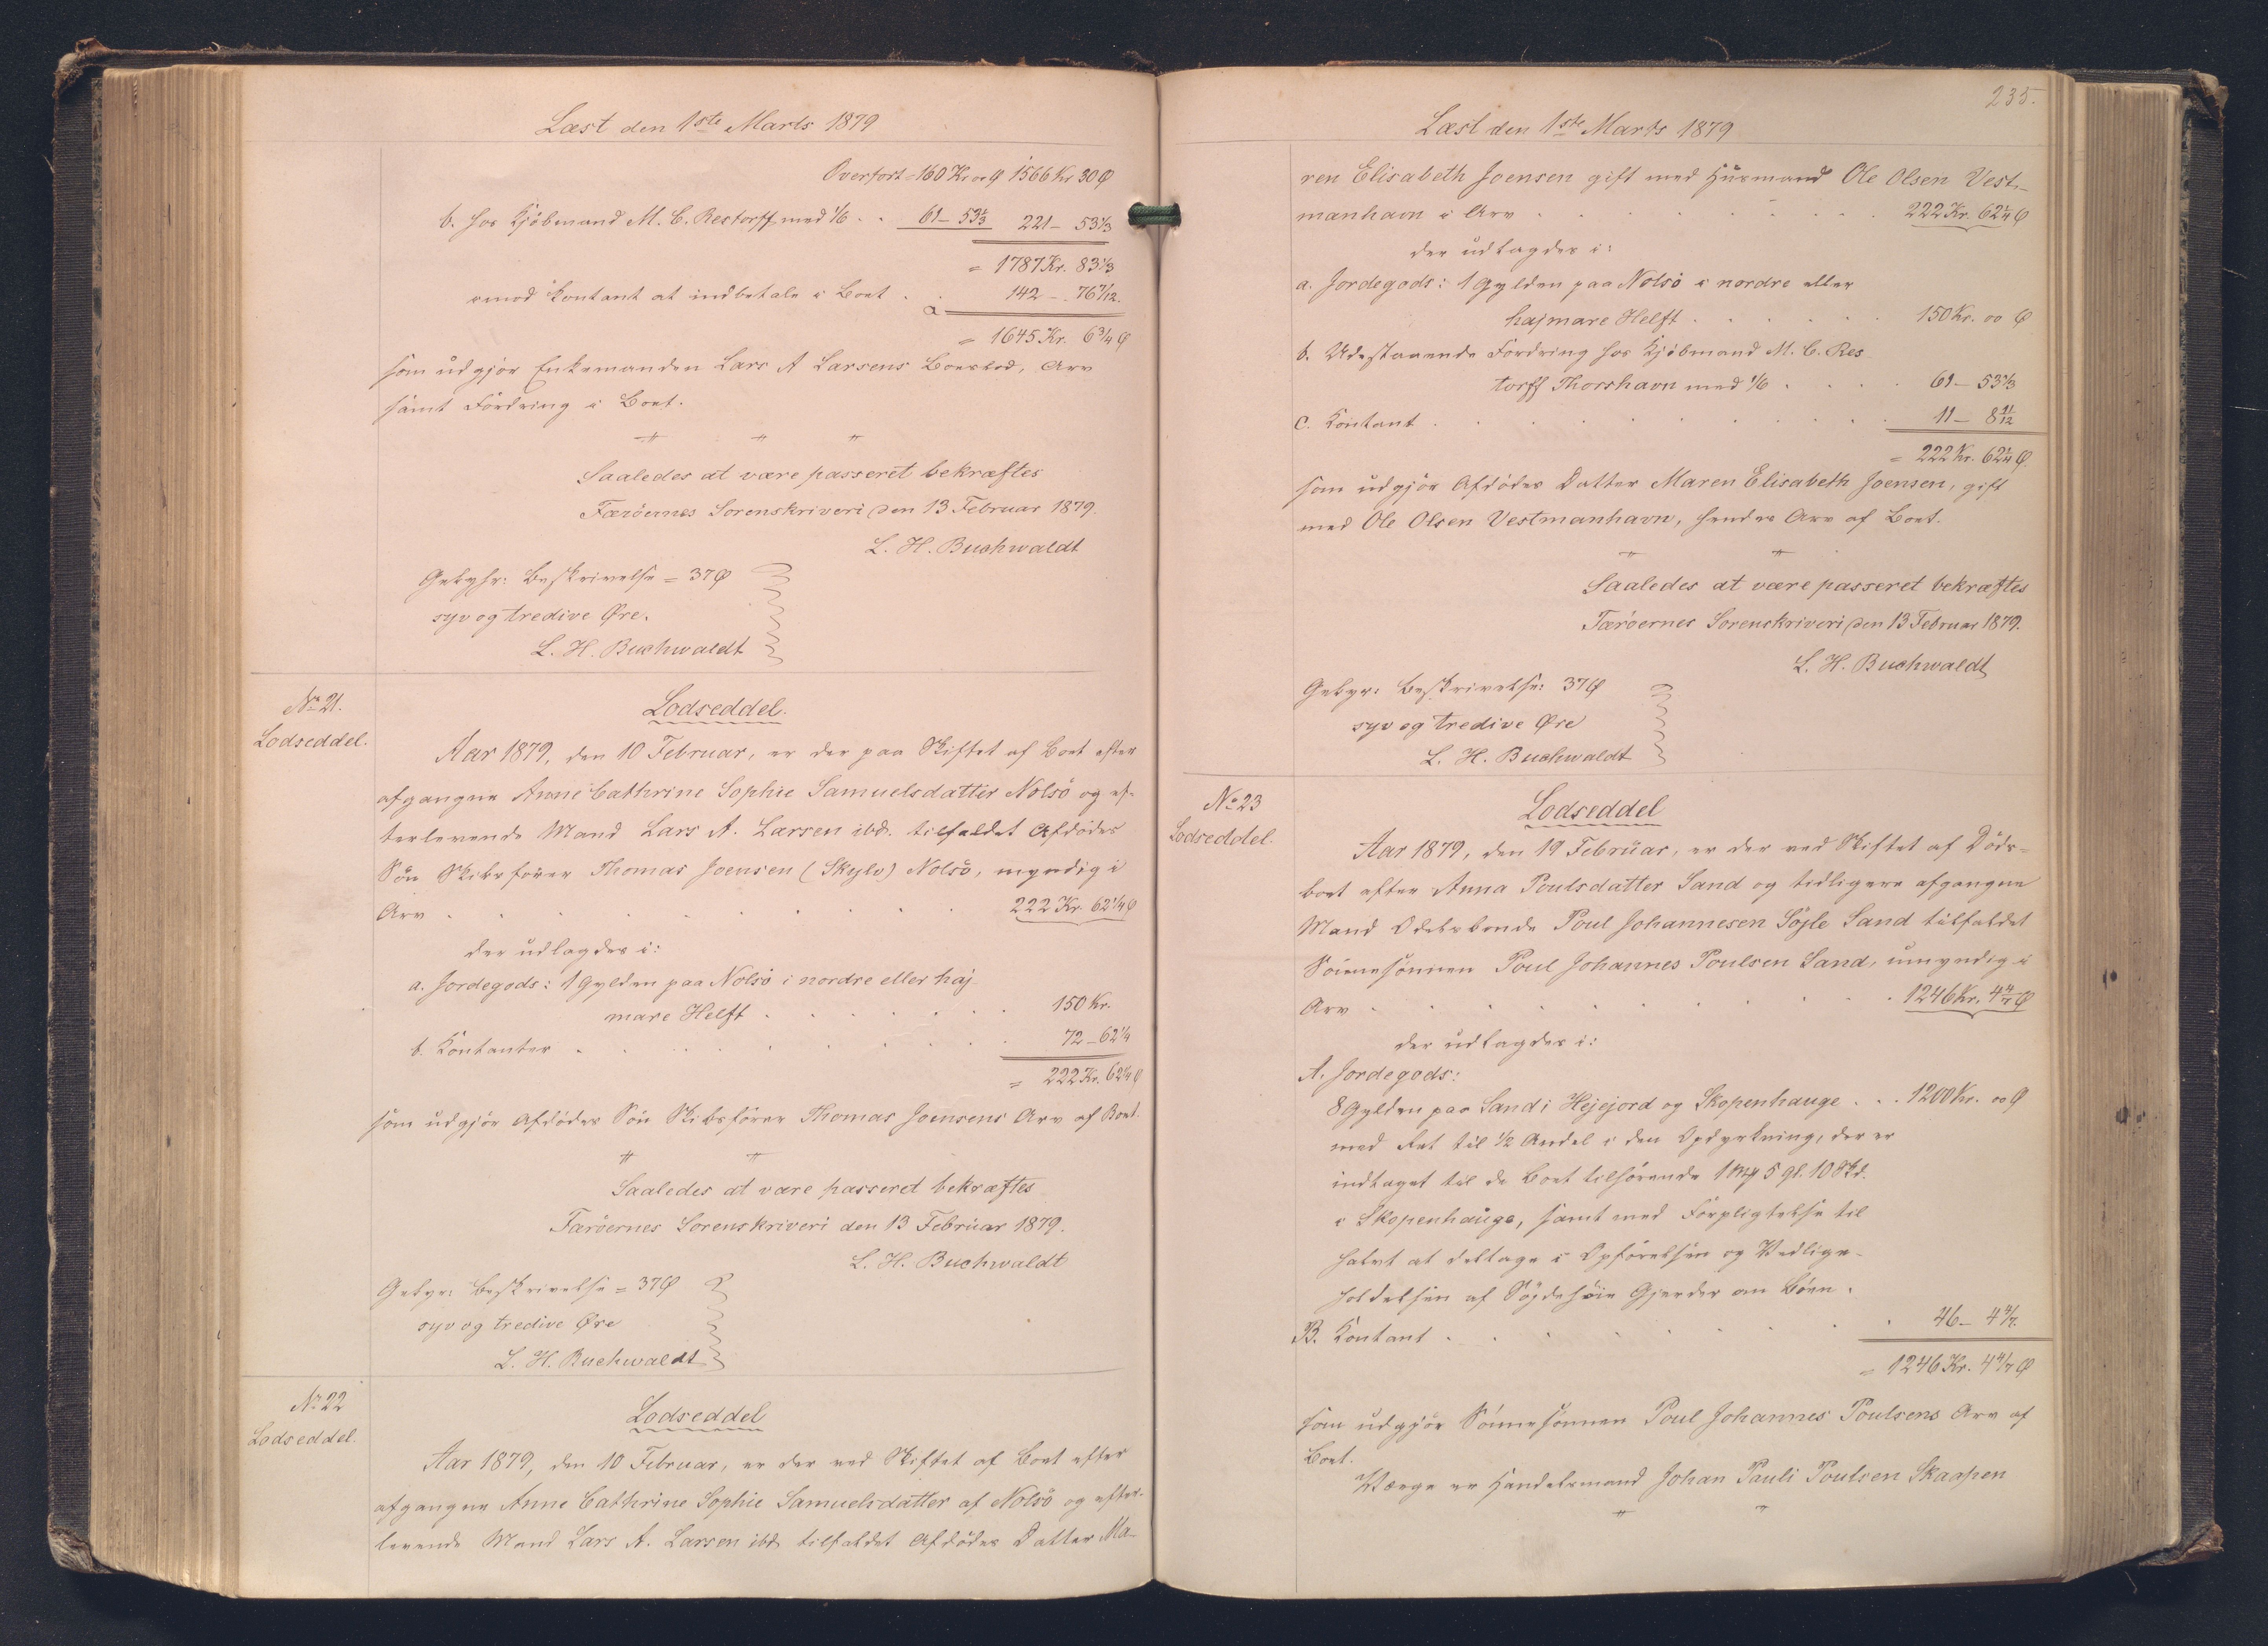 Læst den 1ste Marts 1879
Overført = 160 Kr oo Ø 1566 Kr 30 Ø
b. hos Kjöbmand M. C. Restorff med 1/6 . . 61 – 53 1/3 221 – 53 1/3
= 1787 Kr. 83 1/3
imod kontant at indbetale i Boet . . 142 – 76 7/12.
= 1645 Kr. 6 3/4 Ø
som udgjør Enkemanden Lars A Larsens Boeslod, Arv
samt Fordring i Boet.
Saaledes at være passeret bekræftes
Færöernes Sorenskriveri den 13 Februar 1879.
L. H. Buchwaldt
Gebyhr: Beskrivelse = 37 Ø
syv og tredive Øre.
L. H. Buchwaldt
No 21.
Lodseddel.
Lodseddel.
Aar 1879, den 10 Februar, er der paa Skiftet af Boet efter
afgangne Anne Cathrine Sophie Samuelsdatter Nolsö og ef-
terlevende Mand Lars A. Larsen ibd. tilfaldet Afdödes
Sön Skibsförer Thomas Joensen (Skylv) Nolsö, myndig i
Arv . . . 222 Kr. 62 1/4 Ø
der udlagdes i:
a. Jordegods: 1 Gylden paa Nolsö i nordre eller haj
mare Helft . . . 150 Kr.
b. Kontanter . . . 72 – 62 1/4
= 222 Kr. 62 1/4 Ø
som udgjör Afdödes Sön Skibsförer Thomas Joensens Arv af Boet.
Saaledes at være passeret bekræftes
Færöernes Sorenskriveri den 13 Februar 1879.
L. H. Buchwaldt
Gebyr: Beskrivelse = 37 Ø
syv og tredive Øre
L. H. Buchwaldt
No 22
Lodseddel.
Lodseddel
Aar 1879, den 10 Februar, er der ved Skiftet af Boet efter
afgangne Anne Cathrine Sophie Samuelsdatter af Nolsö og efter-
levende Mand Lars A. Larsen ibd tilfaldet Afdödes Datter Ma-
235.
Læst den 1ste Marts 1879
ren Elisabeth Joensen gift med Husmand Ole Olsen Vest-
manhavn i Arv . . . 222 Kr. 62 1/4 Ø
der udlagdes i:
a. Jordegods: 1 Gylden paa Nolsö i nordre eller
hajmare Helft . . . 150 Kr. oo Ø
b. Udestaaende Fordring hos Kjöbmand M. C. Res
torff Thorshavn med 1/6 . . . 61 – 53 1/3
c. Kontant . . . 11 – 8 11/12
= 222 Kr. 62 1/4 Ø.
som udgjör Afdödes Datter Maren Elisabeth Joensen, gift
med Ole Olsen Vestmanhavn, hendes Arv af Boet.
Saaledes at være passeret bekræftes
Færöernes Sorenskriveri den 13 Februar 1879.
L. H. Buchwaldt
Gebyr: Beskrivelse: 37 Ø
syv og tredive Øre
L. H. Buchwaldt
No 23
Lodseddel.
Lodseddel
Aar 1879, den 19 Februar, er der ved Skiftet af Döds-
boet efter Anna Poulsdatter Sand og tidligere afgangne
Mand Odelsbonde Poul Johannesen Söjle Sand tilfaldet
Sönnesönnen Poul Johannes Poulsen Sand, umyndig i
Arv . . . 1246 Kr. 4 4/7 Ø
der udlagdes i:
A. Jordegods:
8 Gylden paa Sand i Hejejord og Skopenhauge . . . 1200 Kr. oo Ø
med Ret til 1/2 Andel i den Opdyrkning, der er
indtaget til de Boet tilhörende 1 Mk 5 gl. 10 Skd.
i Skopenhauge, samt med Forpligtelse til
halvt at deltage i Opförelsen og Vedlige-
holdelsen af Gjerder om Böen.
B. Kontant . . . 46 – 4 4/7.
= 1246 Kr. 4 4/7 Ø
som udgjör Sönnesönnen Poul Johannes Poulsens Arv af
Boet.
Værge er Handelsmand Johan Pauli Poulsen Skaapen